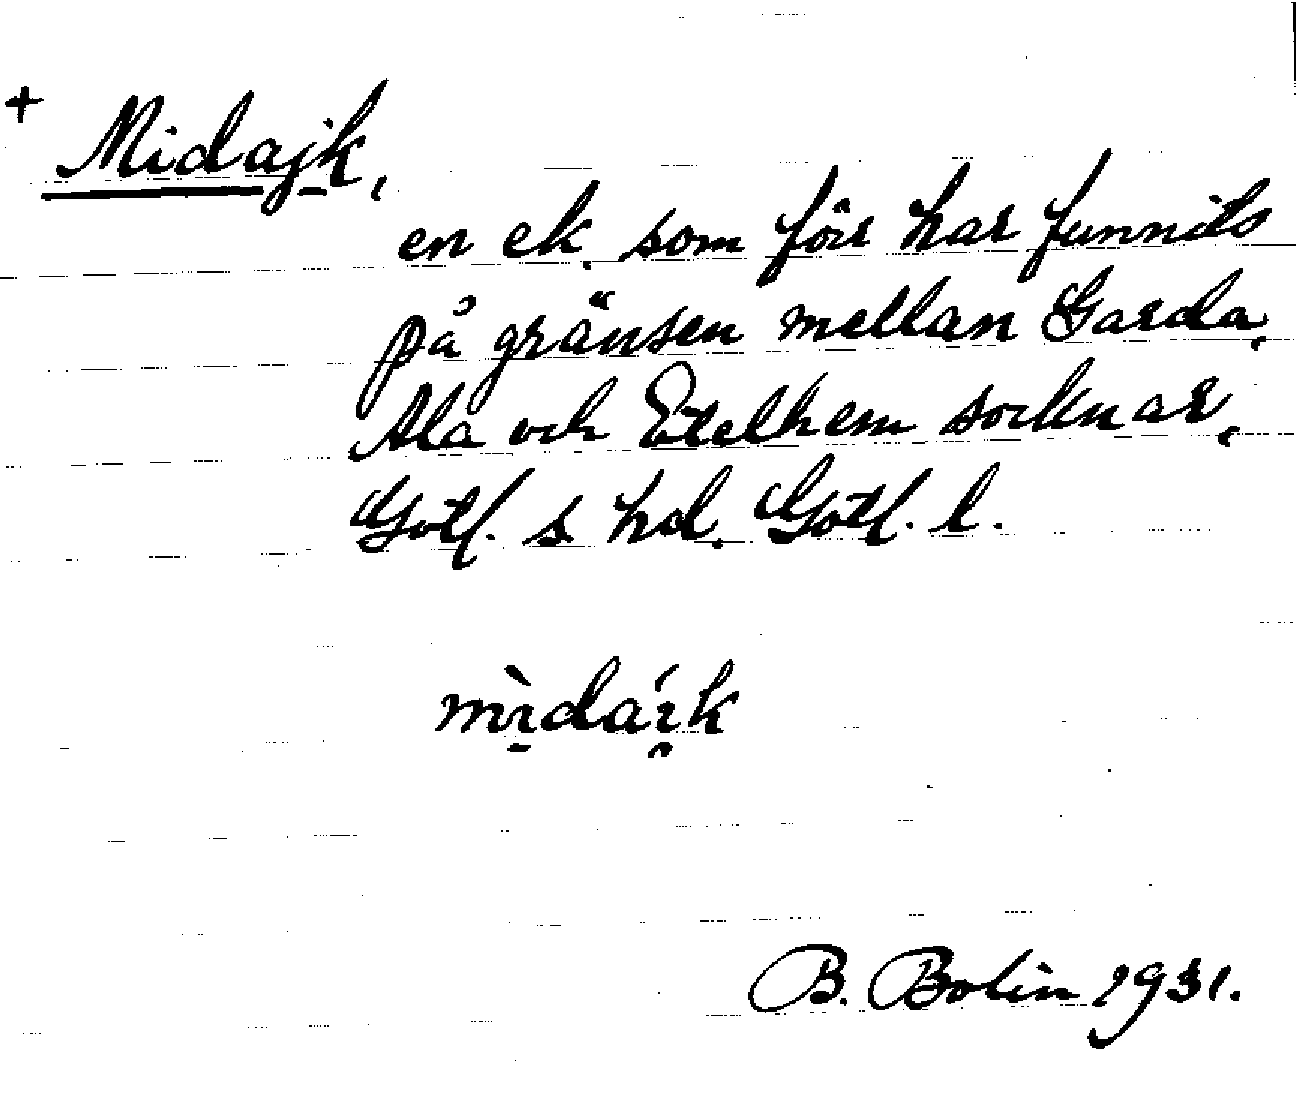 + Midajk,
en ek som förr har funnits
på gränsen mellan Garda,
Ala och Etelhem socknar,
Gotl. s hd. Gotl. l.
mìdaík
B. Bolin 1931.